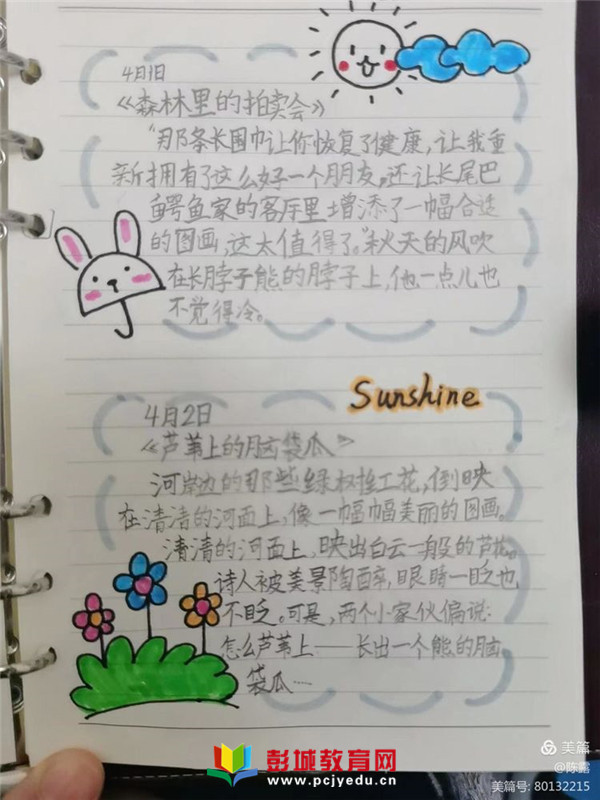 4月1日
《森林里的拍卖会》
“那条长围巾让你恢复了健康,让我重
新拥有了这么好一个朋友,还让长尾巴
鳄鱼家的客厅里增添了一幅合适
的图画,这太值得了。”秋天的风吹
在长脖子熊的脖子上,他一点儿也
不觉得冷。
Sunshine
4月2日
《芦苇上的脑袋瓜》
河岸边的那些绿树红花,倒映
在清清的河面上,像一幅幅美丽的图画。
清清的河面上,映出白云一般的芦花。
诗人被美景陶醉,眼睛一眨也
不眨。可是,两个小家伙偏说:
怎么芦苇上——长出一个熊的脑
袋瓜……
彭城教育网
www.pcjyedu.cn
美篇
@陈露
美篇号: 80132215